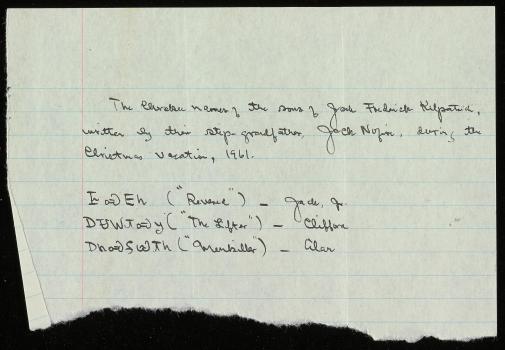 The Cherokee names of the sons of Jack Frederick Kilpatrick,
written by their step-grandfather, Jack Nofire, during the
Christmas vacation, 1961.
– Jack, Jr.
("The Lifter") – Clifford
("Mankiller") – Alan